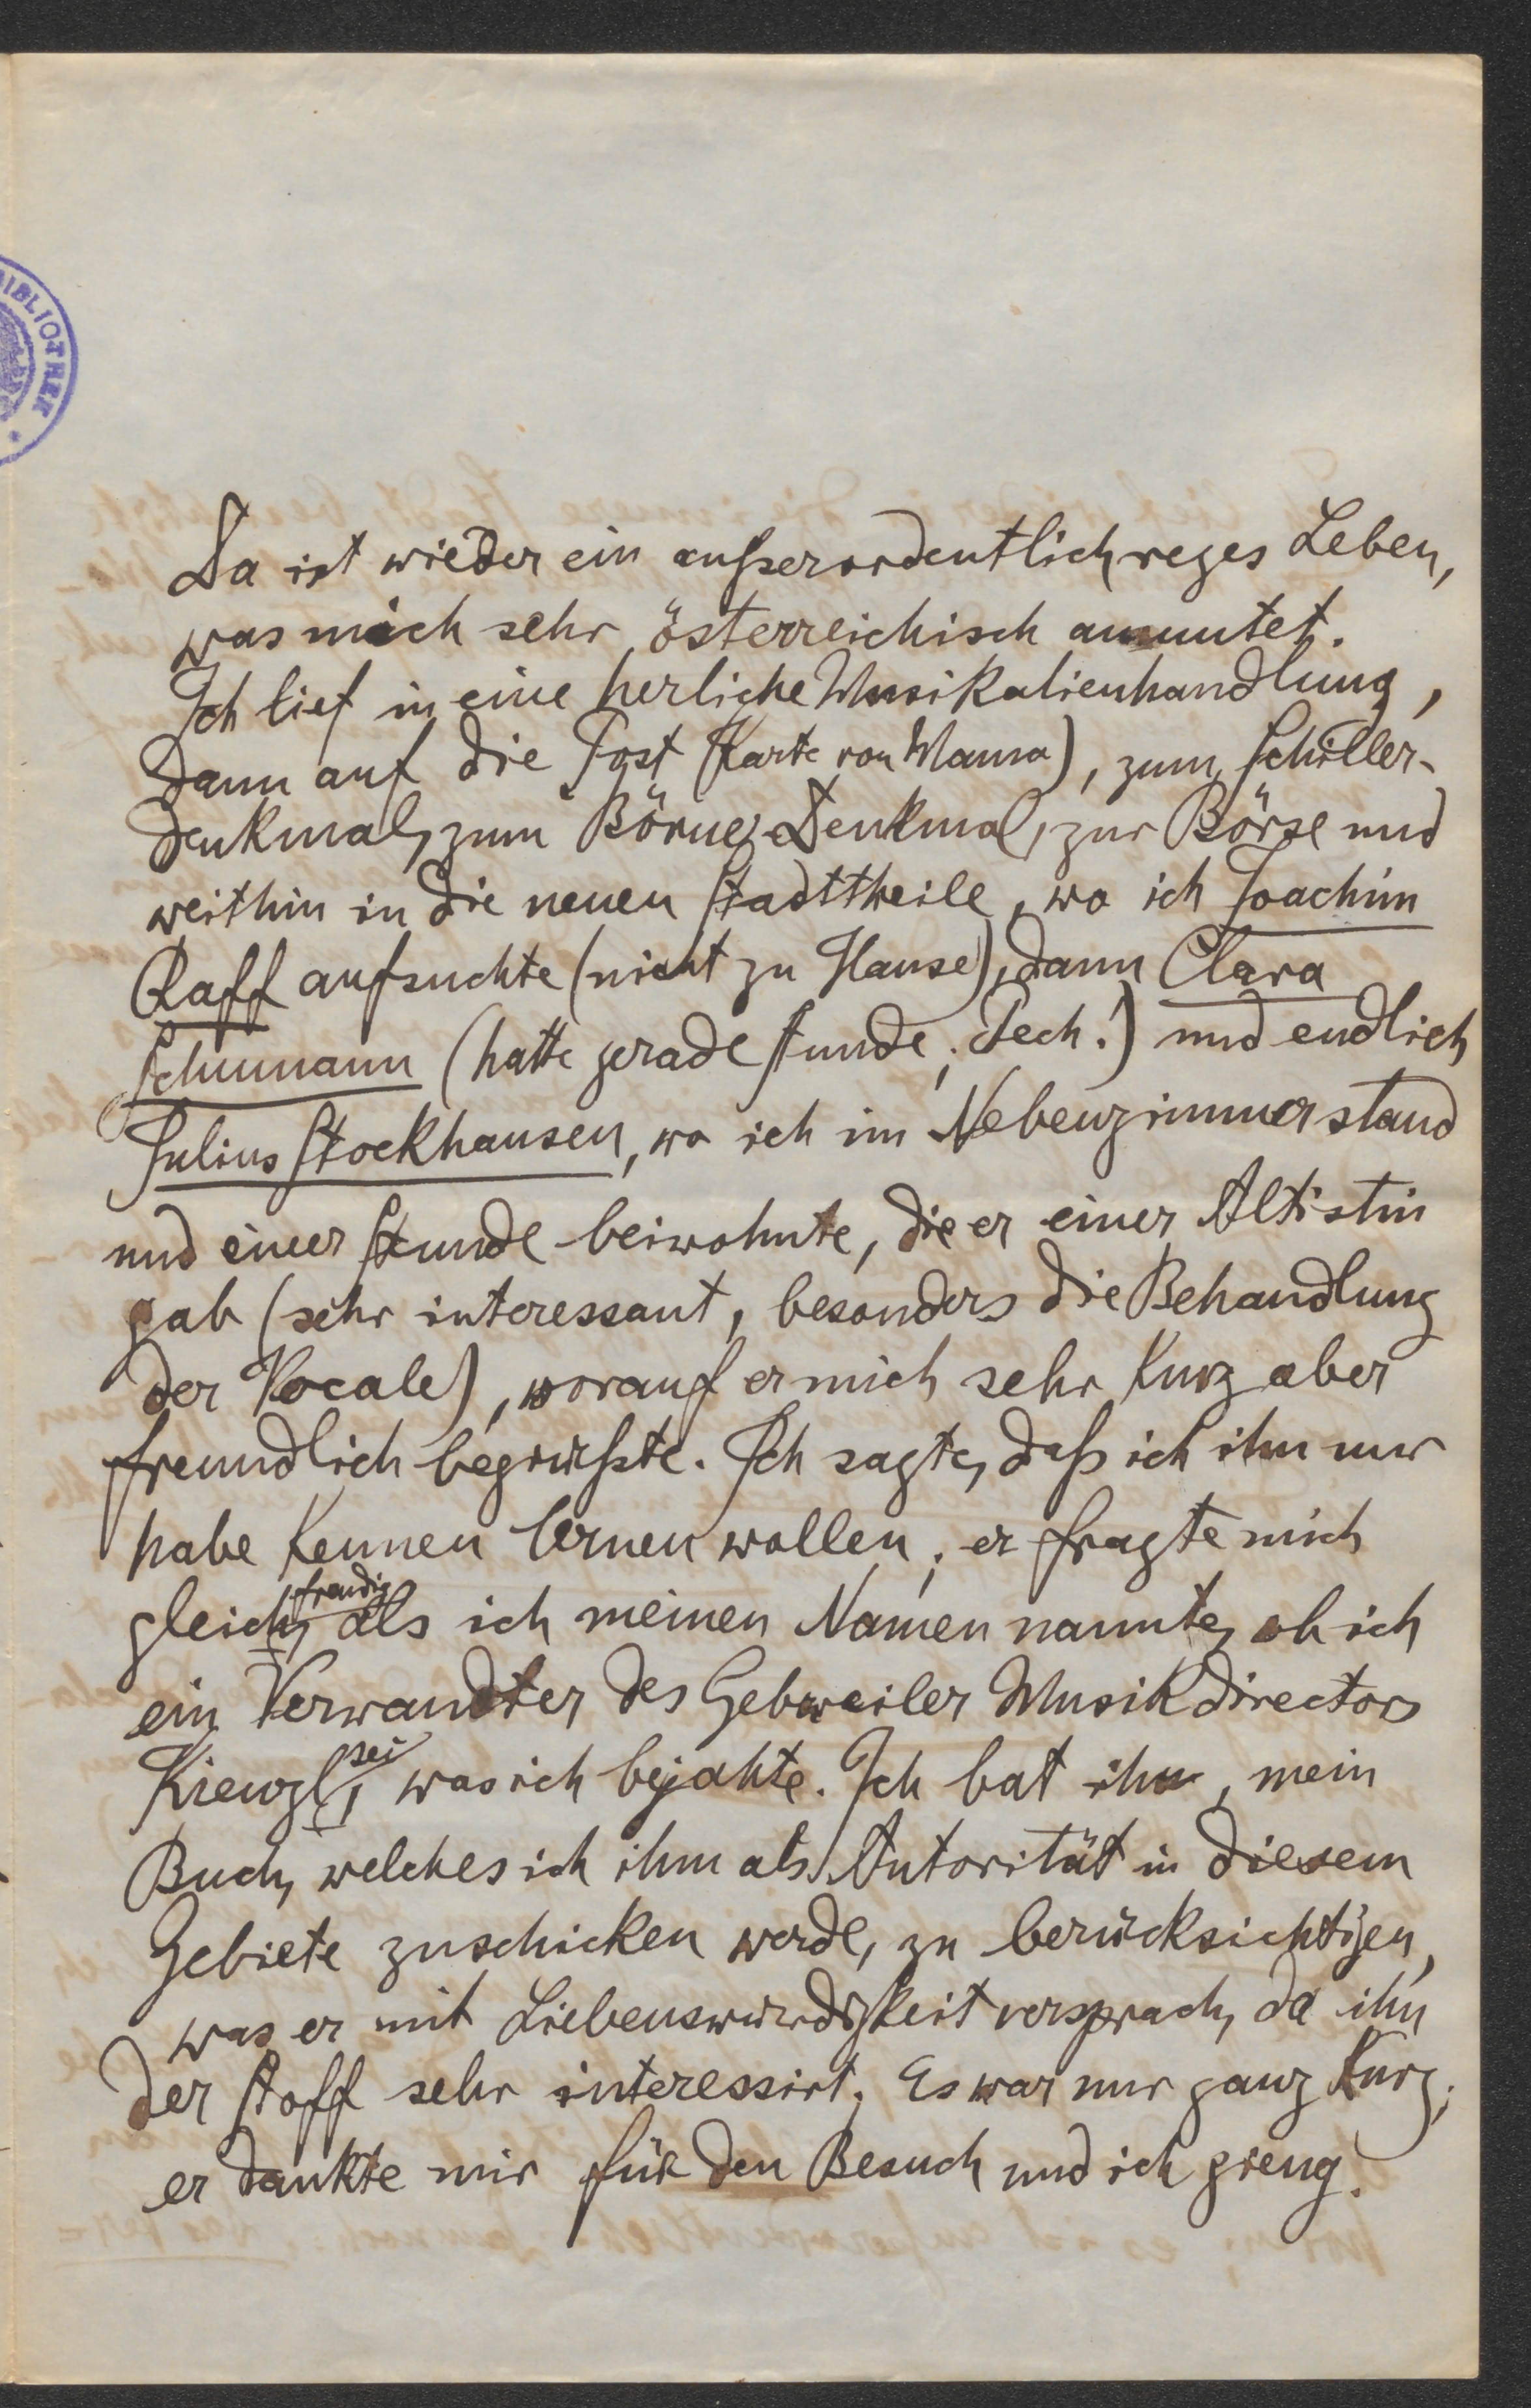 BIBLIOTHEK
Da ist wieder ein außerordentlich reges Leben,
was mich sehr österreichisch anmutet.
Ich lief in eine herliche Musikalienhandlung,
dann auf die Post (Karte von Mama), zum Schiller-
denkmal, zum Börne-Denkmal, zur Börse und
weithin in die neuen Stadttheile, wo ich Joachim
Raff aufsuchte (nicht zu Hause), dann Clara
Schumann (hatte gerade Stunde; Pech!) und endlich
Julius Stockhausen, wo ich im Nebenzimmer stand
und einer Stunde beiwohnte, die er einer Altistin
gab (sehr interessant, besonders die Behandlung
der Vocale), worauf er mich sehr kurz aber
freundlich begrüßte. Ich sagte, daß ich ihn nur
habe kennen lernen wollen; er fragte mich
freudig
gleich, als ich meinen Namen nannte, ob ich
ein Verwandter des Gebweiler Musikdirectors
sei
Kienzl, was ich bejahte. Ich bat ihn, mein
Buch, welches ich ihm als Autorität in diesem
Gebiete zuschicken werde, zu berücksichtigen,
was er mit Liebenswürdigkeit versprach, da ihn
der Stoff sehr interessirt. Es war nur ganz kurz;
er dankte mir für den Besuch und ich gieng.